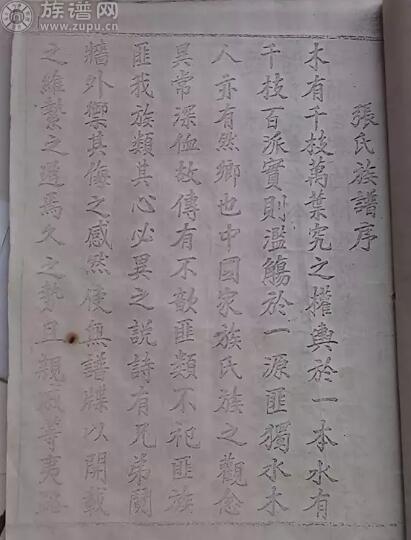 族谱网
www.zupu.cn
張氏族譜序
木有千枝萬葉究之權輿於一本水有
千枝百派實則濫觴於一源匪獨水木
人亦有然鄉也中國家族氏族之觀念
異常深故傳有不歆匪類不祀匪族
匪我族類其心必異之説詩有兄弟鬩
牆外禦其侮之感然使無譜牒以開載
之維繫之遅焉久之勢且親等夷